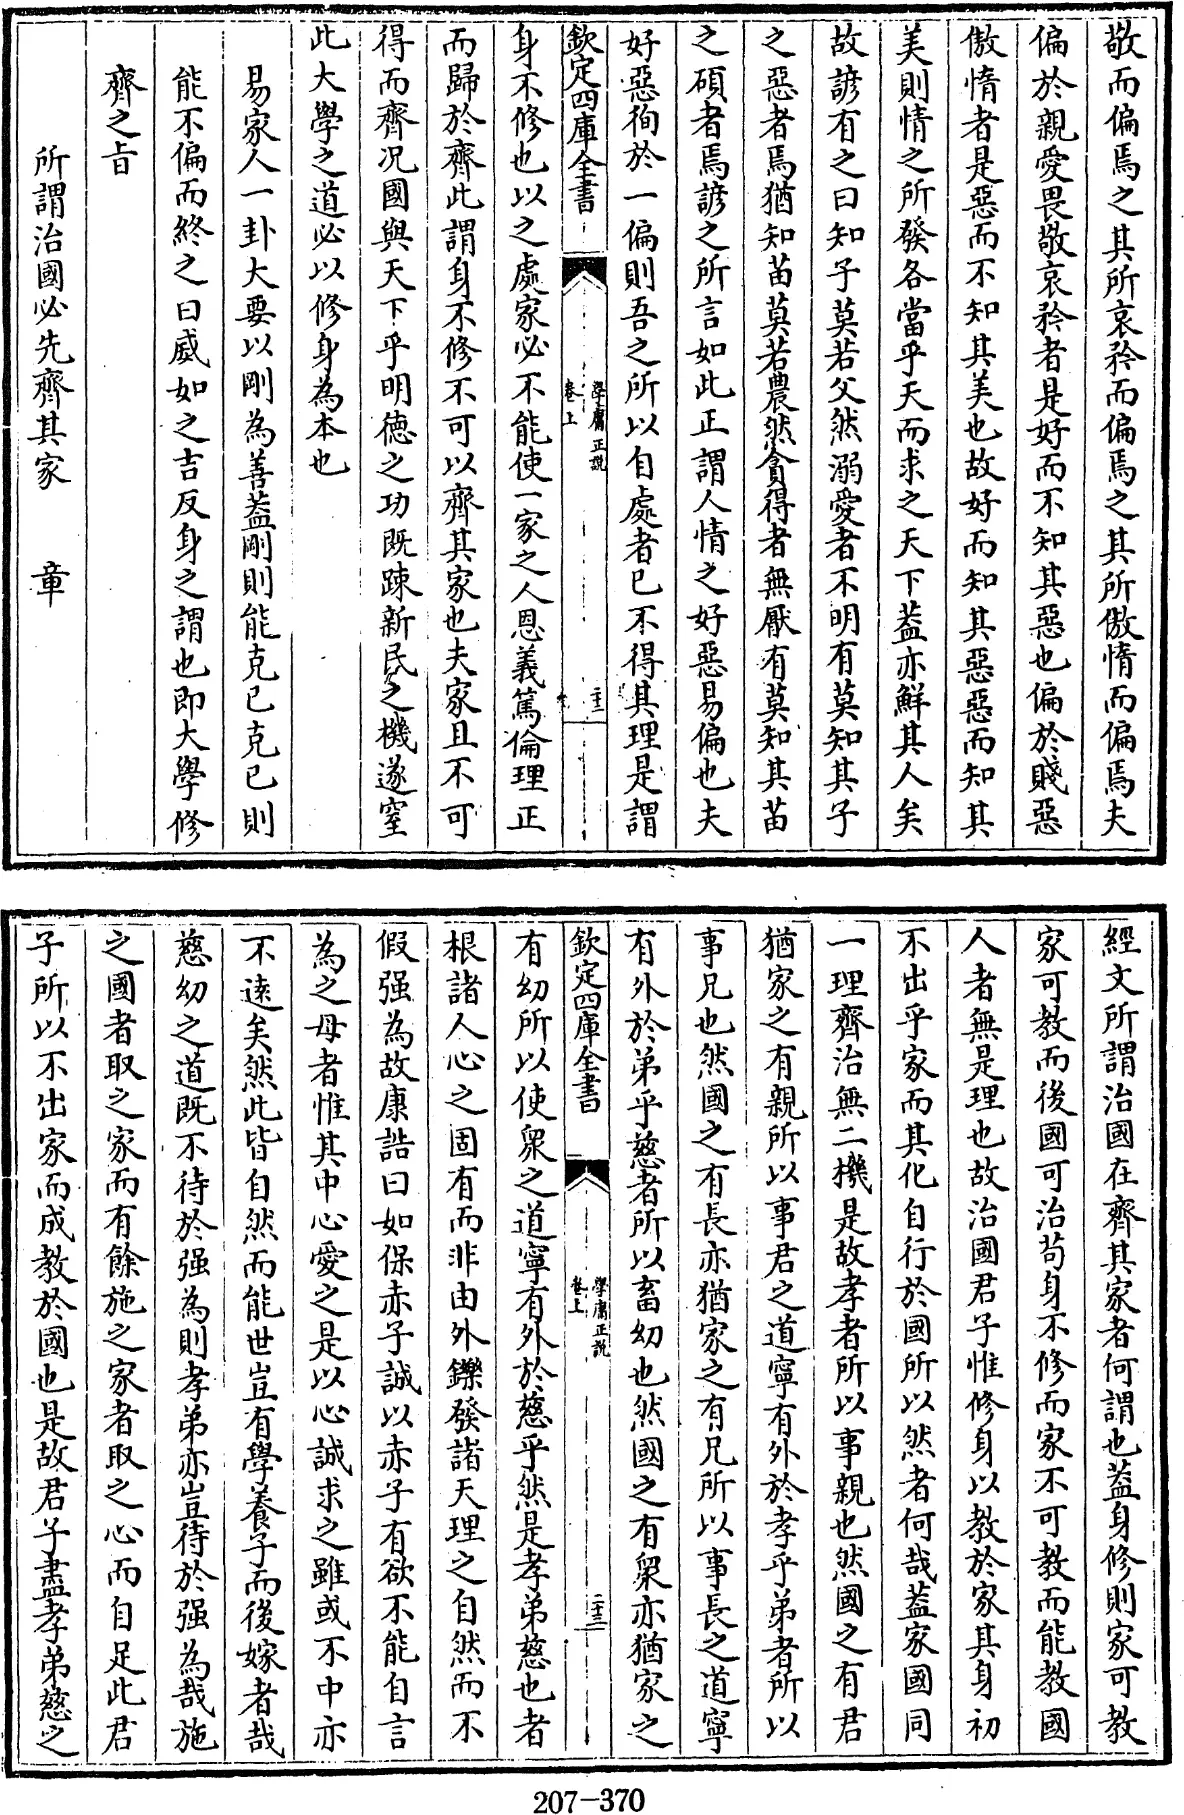 敬而偏焉之其所哀矜而偏焉之其所傲惰而偏焉夫
偏於親愛畏敬哀矜者是好而不知其惡也偏於賤惡
傲惰者是惡而不知其美也故好而知其惡惡而知其
美則情之所發各當乎天而求之天下葢亦鮮其人矣
故諺有之曰知子莫若父然溺愛者不明有莫知其子
之惡者焉猶知苗莫若農然貪得者無厭有莫知其苗
之碩者焉諺之所言如此正謂人情之好惡易偏也夫
好惡徇於一偏則吾之所以自處者已不得其理是謂
欽定四庫全書
學庸正說
卷上
二十二
身不修也以之處家必不能使一家之人恩義篤倫理正
而歸於齊此謂身不修不可以齊其家也夫家且不可
得而齊况國與天下乎明徳之功既踈新民之機遂窒
此大學之道必以修身為本也
易家人一卦大要以剛為善葢剛則能克已克已則
能不偏而終之曰威如之吉反身之謂也即大學修
齊之旨
所謂治國必先齊其家 章
經文所謂治國在齊其家者何謂也葢身修則家可教
家可教而後國可治苟身不修而家不可教而能教國
人者無是理也故治國君子惟修身以教於家其身初
不出乎家而其化自行於國所以然者何哉葢家國同
一理齊治無二機是故孝者所以事親也然國之有君
猶家之有親所以事君之道寧有外於孝乎弟者所以
事兄也然國之有長亦猶家之有兄所以事長之道寧
有外於弟乎慈者所以畜幼也然國之有衆亦猶家之
欽定四庫全書
學庸正說
卷上
二十三
有幼所以使衆之道寧有外於慈乎然是孝弟慈也者
根諸人心之固有而非由外鑠發諸天理之自然而不
假强為故康誥曰如保赤子誠以赤子有欲不能自言
為之母者惟其中心愛之是以心誠求之雖或不中亦
不逺矣然此皆自然而能世豈有學養子而後嫁者哉
慈幼之道既不待於强為則孝弟亦豈待於强為哉施
之國者取之家而有餘施之家者取之心而自足此君
子所以不出家而成教於國也是故君子盡孝弟慈之
207-370